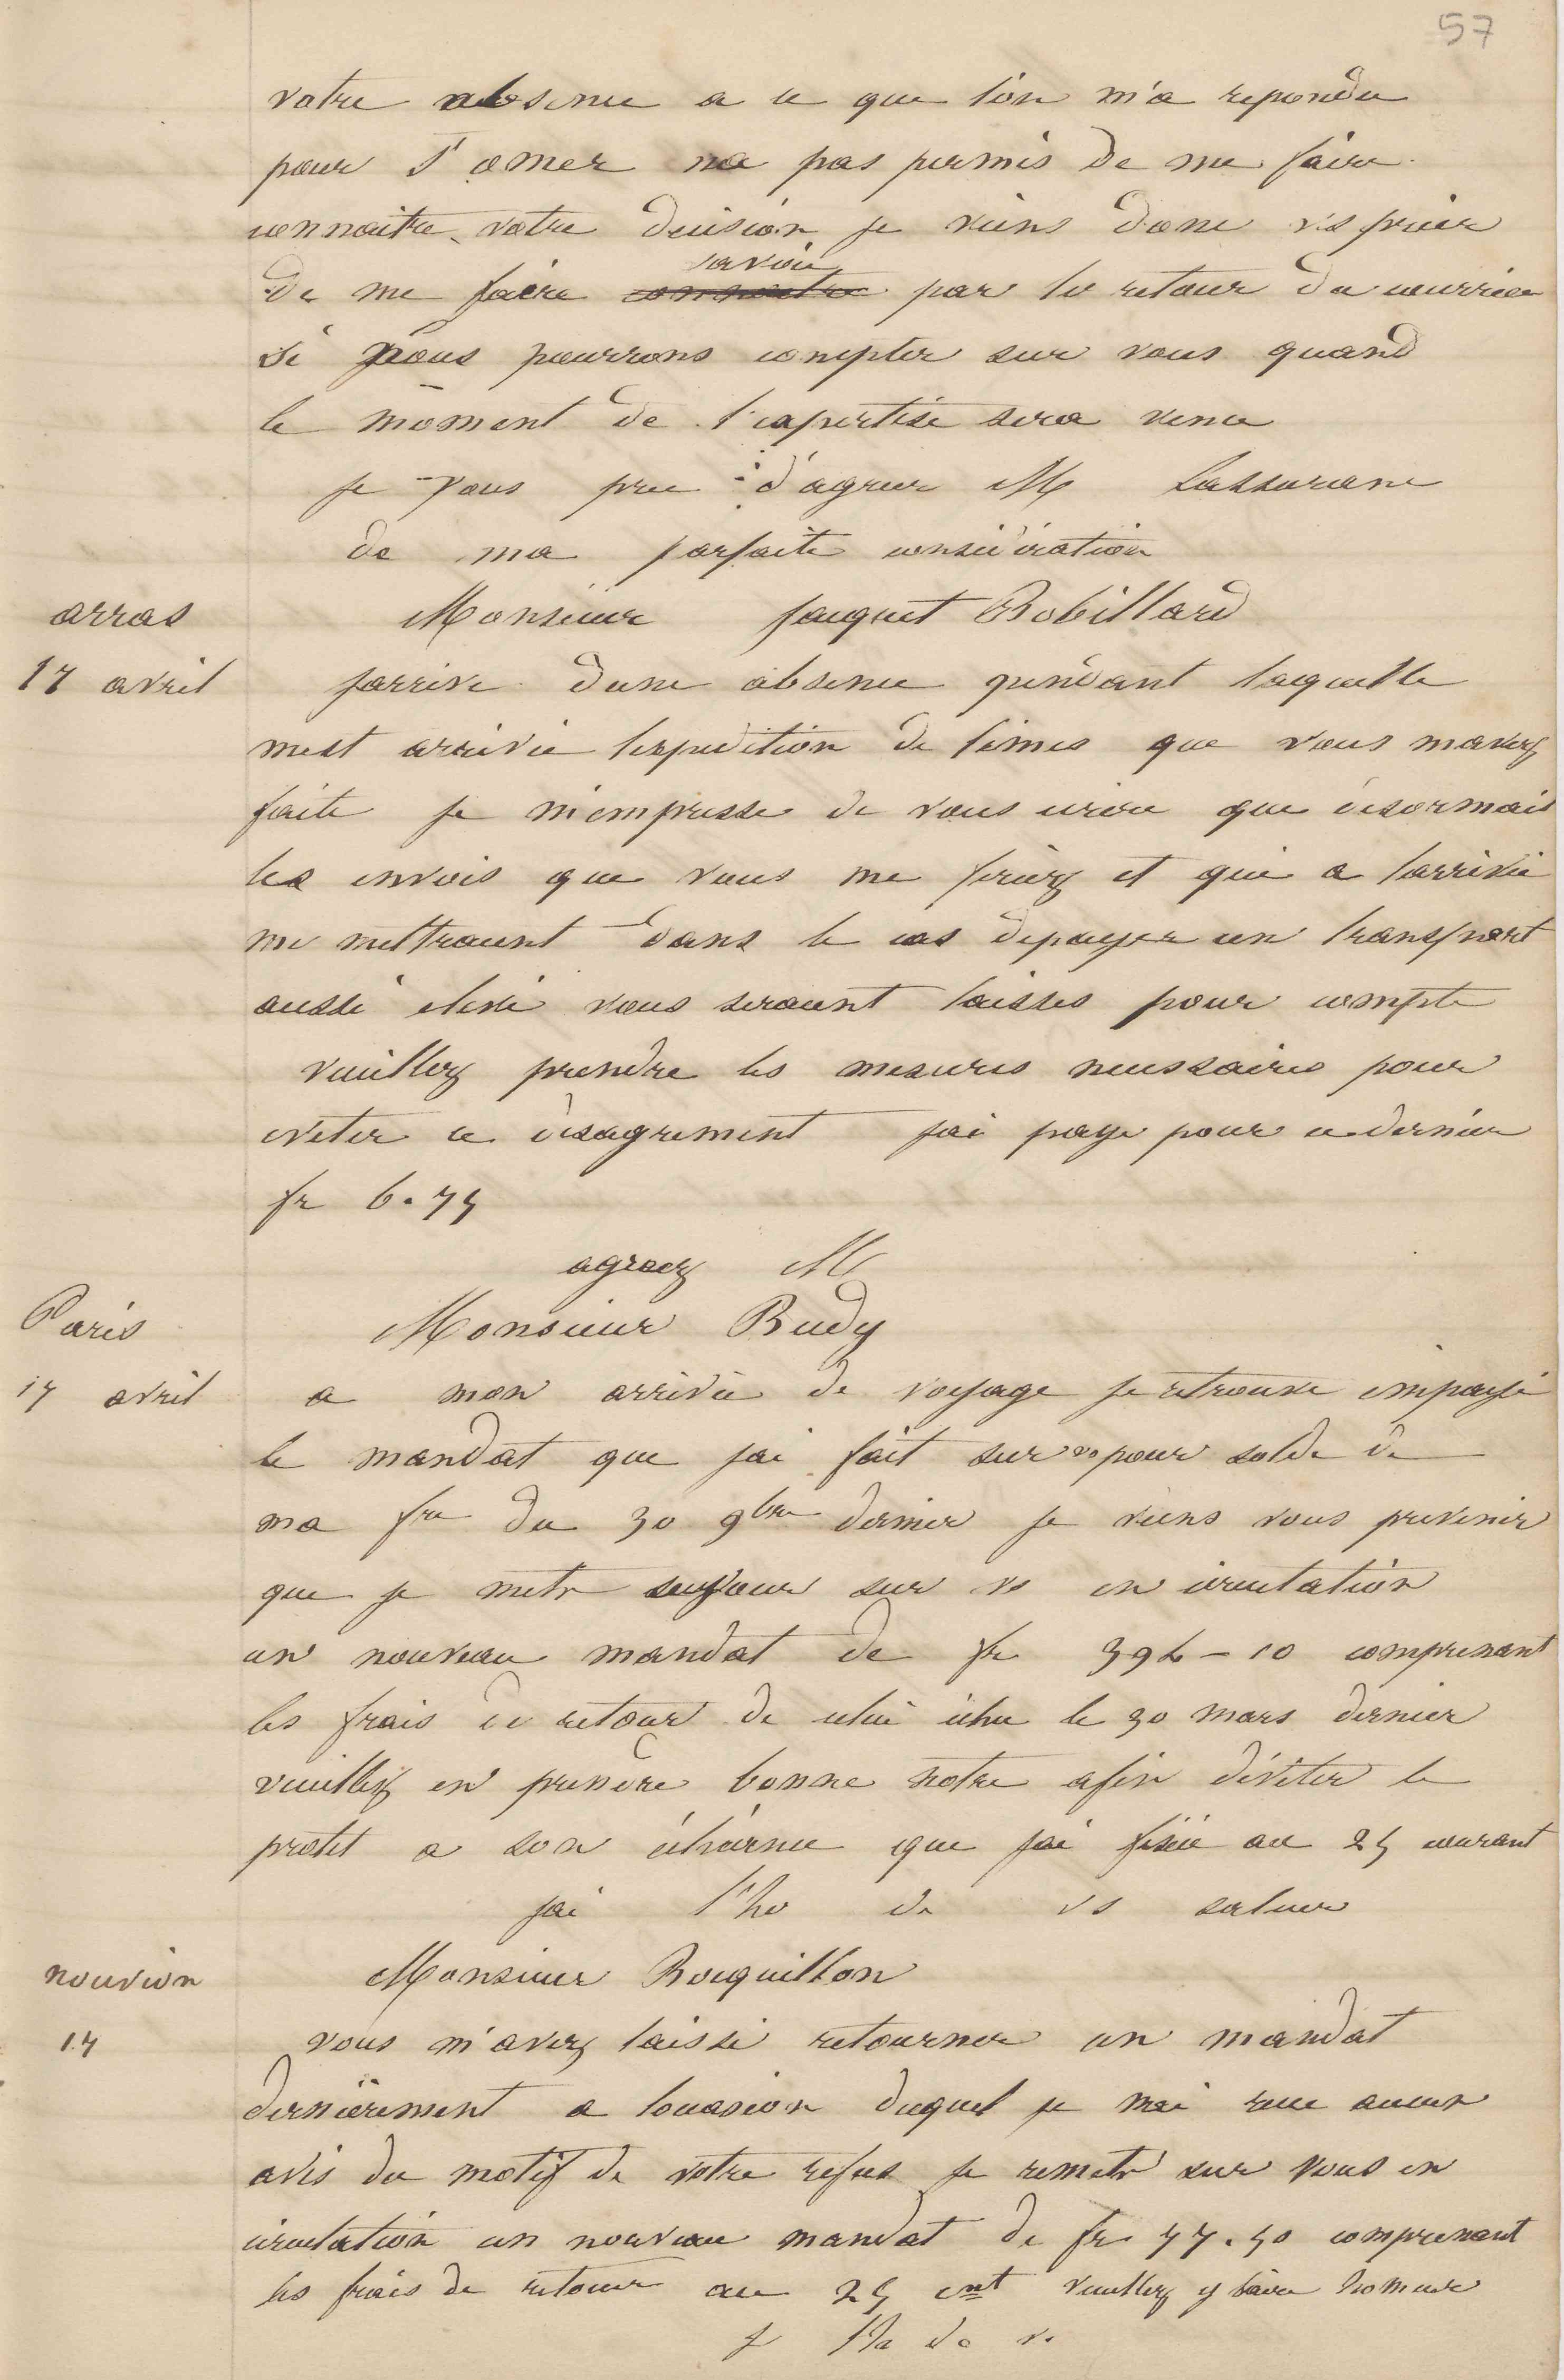 57
votre absence a ce que l'on m'a repondu
pour St omer na pas permis de me faire
connaitre votre decision je viens donc vs prier
savoir
de me faire connaitre par le retour du courrier
si nous pourrons compter sur vous quand
le moment de l'expertise sera venu
je vous prie d'agreer M lassurance
de ma parfaite consideration
arras Monsieur fauquet Robillard
17 avril jarrive dune absence pendant laquelle
mest arrivée lexpedition de limes que vous mavez
faite je m'empresse de vous ecrire que desormais
les envois que vous me feriez et qui a larrivée
me mettraient dans le cas depayer un transport
aussi elevé vous seraient laisses pour compte
veuillez prendre les mesures necessaires pour
eviter ce desagrement jai payé pour ce dernier
fr 6.75
agreez M
Paris Monsieur Budy
17 avril a mon arrivée de voyage je retrouve impayé
le mandat que jai fait sur vs pour solde de
ma fre du 30 9bre dernier je viens vous prevenir
que je mets sur vs en circulation
un nouveau mandat de fr 396-10 comprenant
les frais de retour de celui échu le 30 mars dernier
veuillez en prendre bonne notre afin d'éviter le
protet a son écheance que jai fixée au 25 courant
jai l'ho de vs saluer
nouvion Monsieur Bocquillon
17 vous m'avez laissé retourner un mandat
dernièrement a loccasion duquel je nai recu aucun
avis du motif de votre refus je remets sur vous en
circulation un nouveau mandat de fr 77.50 comprenant
les frais de retour au 25 cnt veuillez y faire honneur
j l'ha de v.